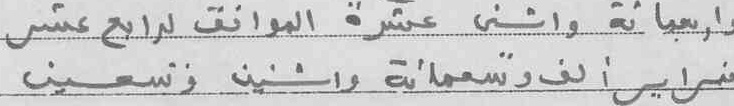 واربعمائة واثنى عشرة الموافق لرابع عشر
فبراير ألف وتسعمائة واثنين وتسعين